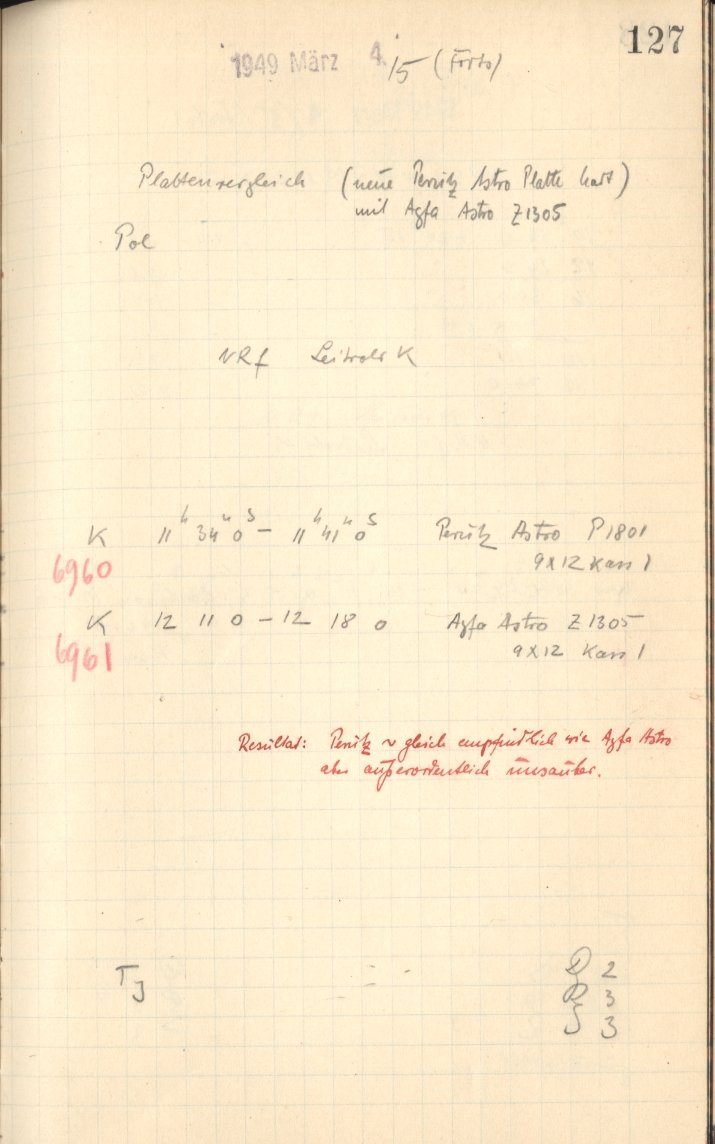 127
1949 März 4./5 (Forts)
Plattenvergleich (neue Perutz Astro Platte hart)
mit Agfa Astro Z1305
Pol
NRf Leitrohr K
K 11h 34m 0s – 11h 41m 0s Perutz Astro P1801
6960 9x12 Kass 1
K 12 11 0 – 12 18 0 Agfa Astro Z1305
6961 9x12 Kass 1
Resultat: Perutz ~ gleich empfindlich wie Agfa Astro
aber außerordentlich unsauber.
TJ
2
3
3